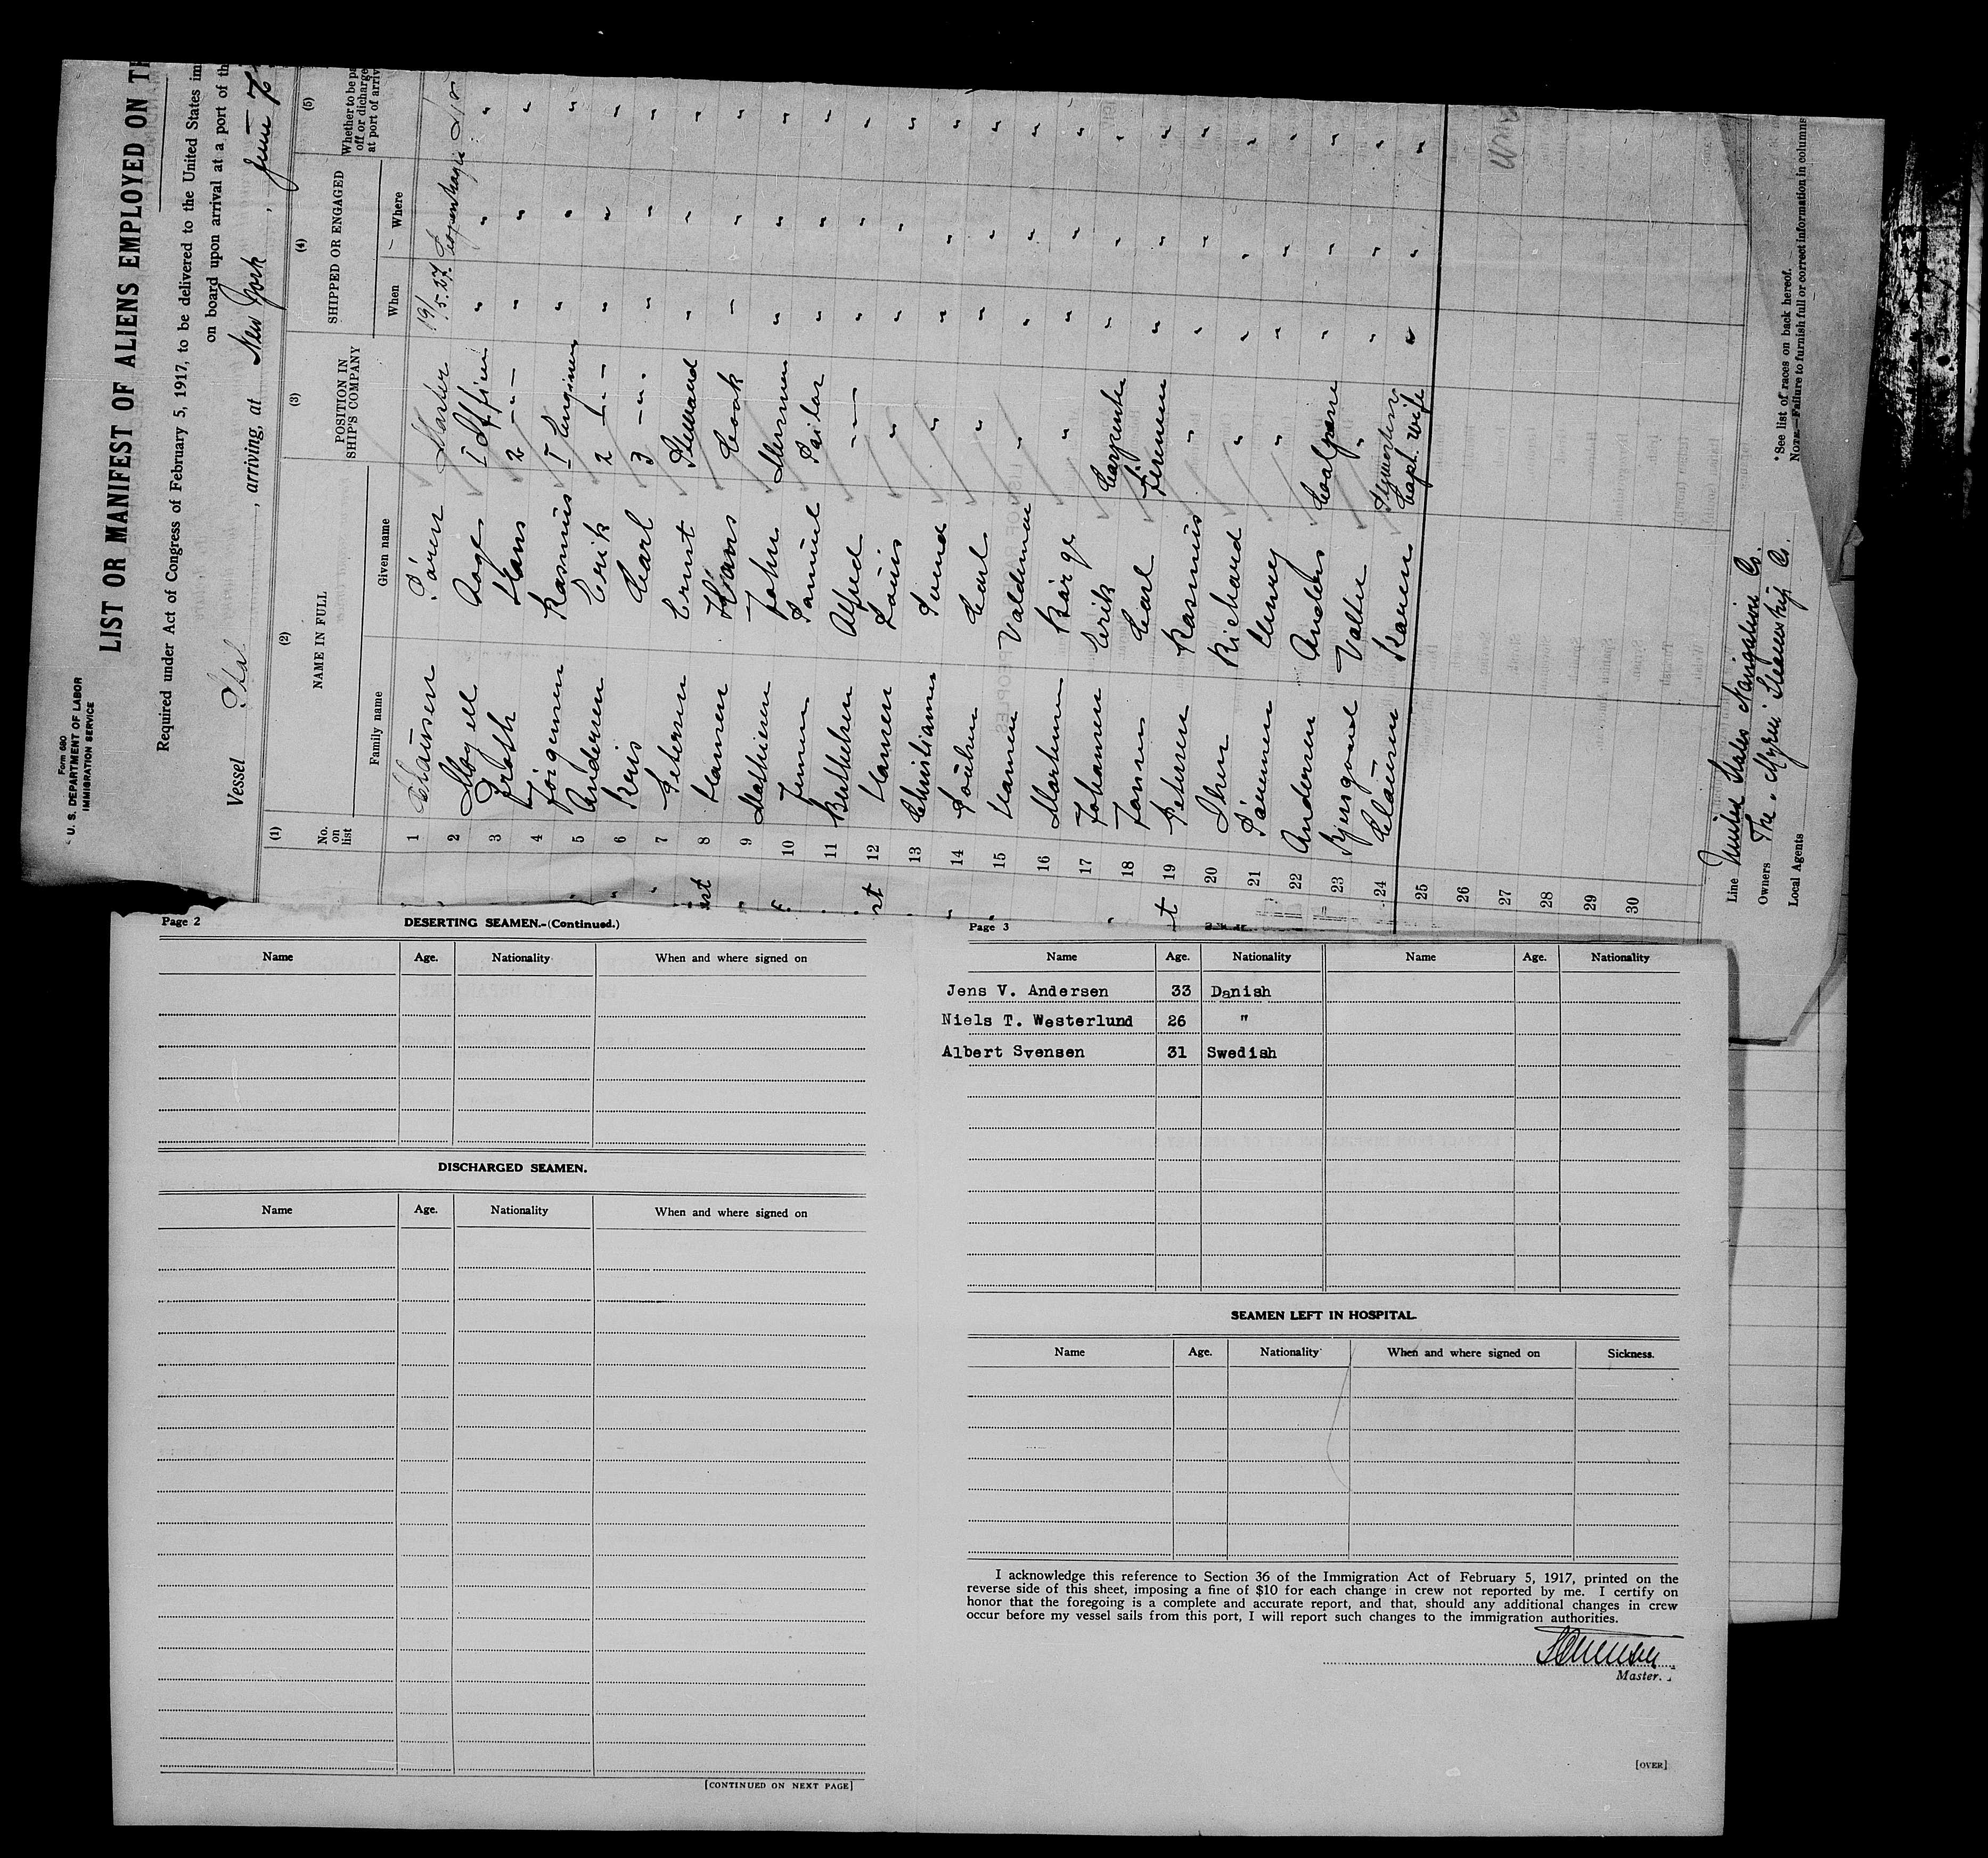 Form 680
U. S. DEPARTMENT OF LABOR
IMMIGRATION SERVICE
LIST OR MANIFEST OF ALIENS EMPLOYED ON TH
Required under Act of Congress of February 5, 1917, to be delivered to the United States im
on board upon arrival at a port of th
Vessel , arriving, at New York , June
(1) (2) (3) (4) (5)
No. on list NAME IN FULL POSITION IN SHIP'S COMPANY SHIPPED OR ENGAGED Whether to be pa off or discharge at port of arriv
Family name Given name When Where
1 Clausen Sören Master 19/5.27. Copenhagen
2 Aage I " "
3 Hans 2 — " — " "
4 Jörgensen Rasmus I Engineer " "
5 Andersen Erik 2 — " — " "
6 Carl 3 — " — " "
7 Petersen Ernt Steward " "
8 Hansen Hans Cook " "
9 Mathiesen John " "
10 Jensen Samuel Sailor " "
11 Berthelsen Alfred — " — " "
12 Hansen Louis " " "
13 Christiansen Svend " " "
14 Carl " " "
15 Hansen Valdemar " " "
16 Martinsen Börge " " "
17 Johansen Erik Carpenter " "
18 Jensen Carl Firemen " "
19 Petersen Rasmus " " "
20 Richard " " "
21 " " "
22 Andersen Anders " "
23 Bjersgaard Valter " " "
24 Clausen Karen Capt. wife " "
25
26
27
28
29
30
Line United States Navigation Co.
Owners The Steamship Co.
Local Agents
*See list of races on back hereof.
NOTE.—Failure to furnish full or correct information in columns
Page 2 DESERTING SEAMEN.-(Continued.)
Name Age. Nationality When and where signed on
DISCHARGED SEAMEN.
Name Age. Nationality When and where signed on
[CONTINUED ON NEXT PAGE]
Page 3
Name Age. Nationality Name Age. Nationality
Jens V. Andersen 33 Danish
Niels T. Westerlund 26 "
Albert Svensen 31 Swedish
SEAMEN LEFT IN HOSPITAL.
Name Age. Nationality When and where signed on Sickness.
I acknowledge this reference to Section 36 of the Immigration Act of February 5, 1917, printed on the
reverse side of this sheet, imposing a fine of $10 for each change in crew not reported by me. I certify on
honor that the foregoing is a complete and accurate report, and that, should any additional changes in crew
occur before my vessel sails from this port, I will report such changes to the immigration authorities.
Master.
[OVER]